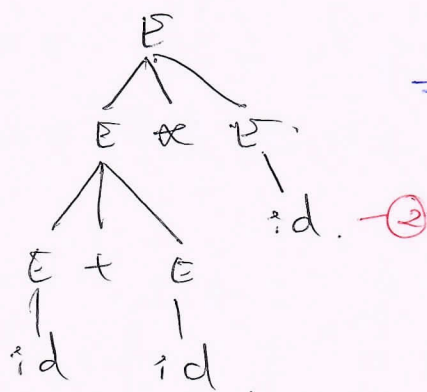 E
E * E
id. - ②
E + E
id id